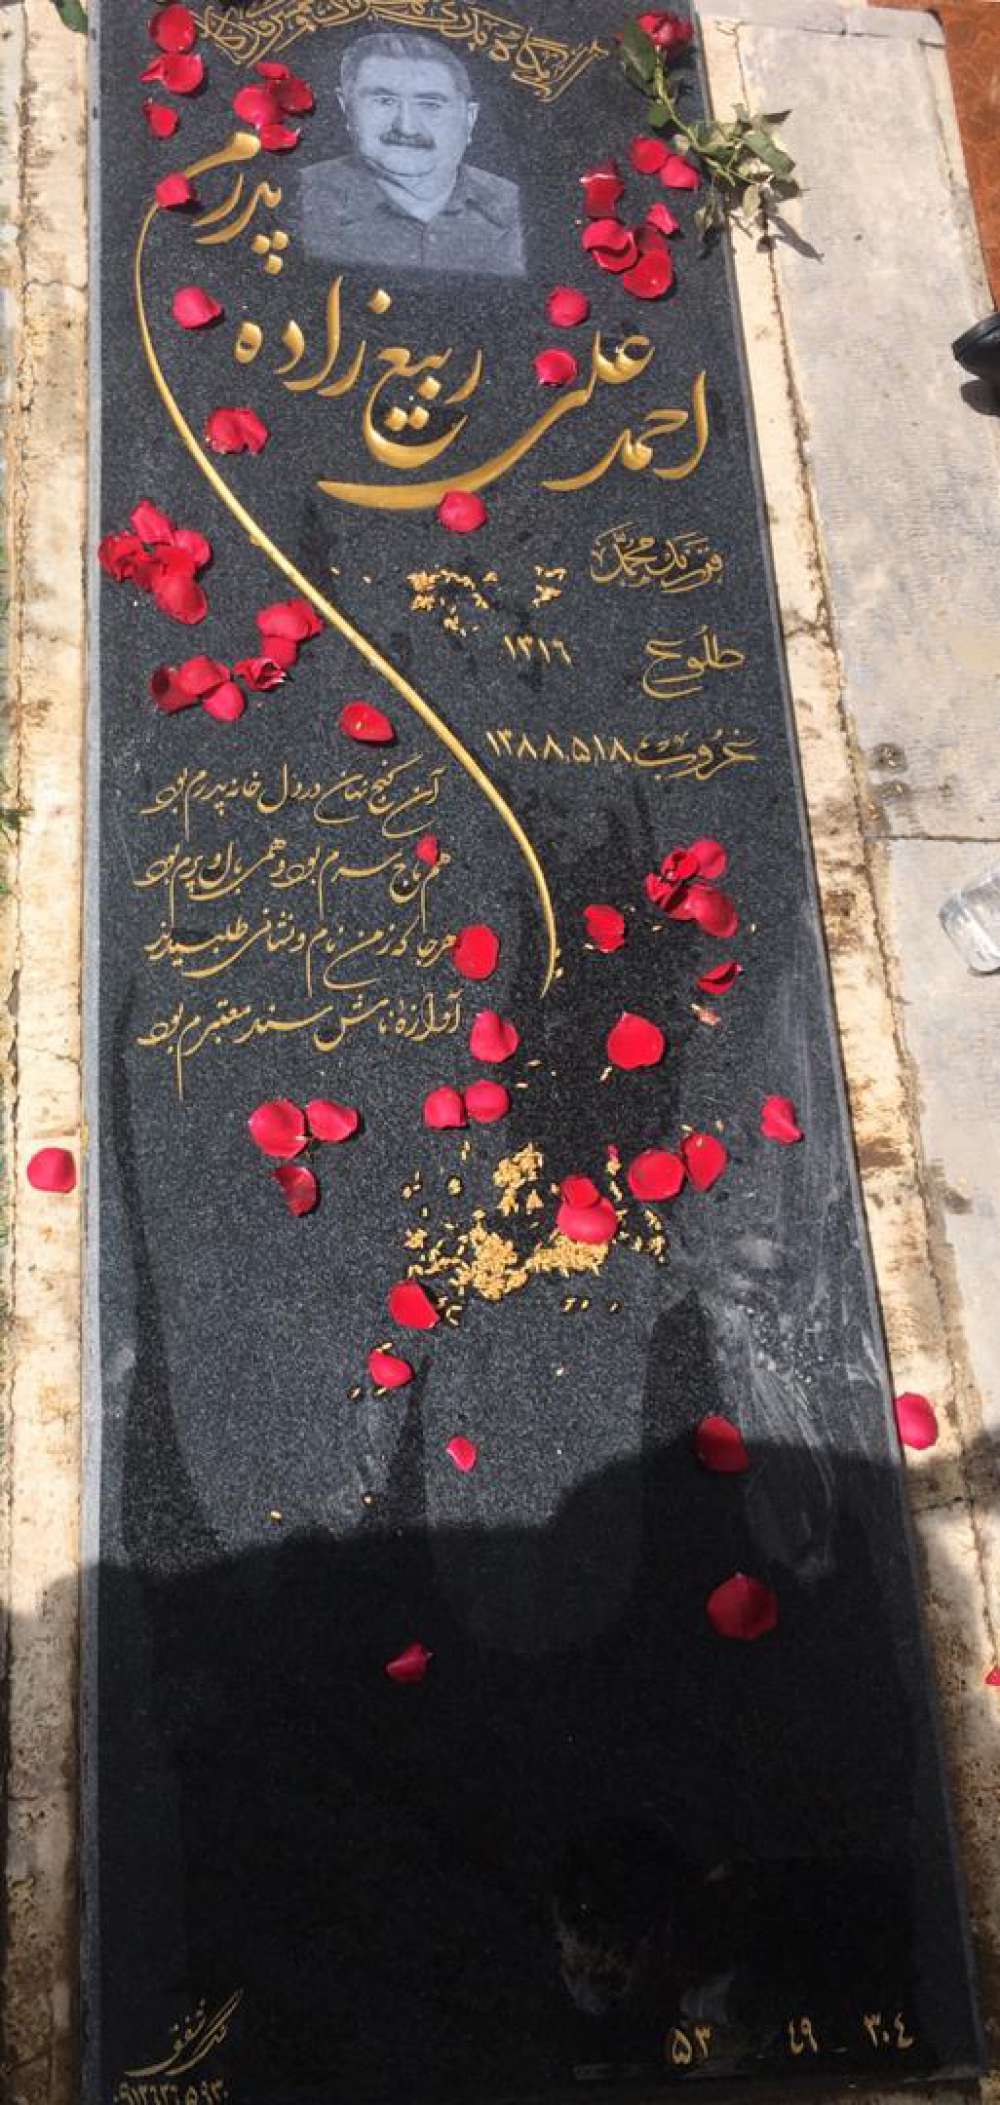 آرامگاه پدری مهربان و همسری فداکار
پدرم
احمد علی ربیع زاده
فرزند محمّد
طلوع ۱۳۱۶
غروب ۱۳۸۸،۵،۱۸
آن گنج نهان در دل خانه پدرم بود
هم تاج سرم بود و همی بال و پرم بود
هر جا که ز من نام و نشانی طلبیدند
آوازهٔ نامش سند معتبرم بود
۳۰۴ - ۴۹ ۵۳
سنگ شفق